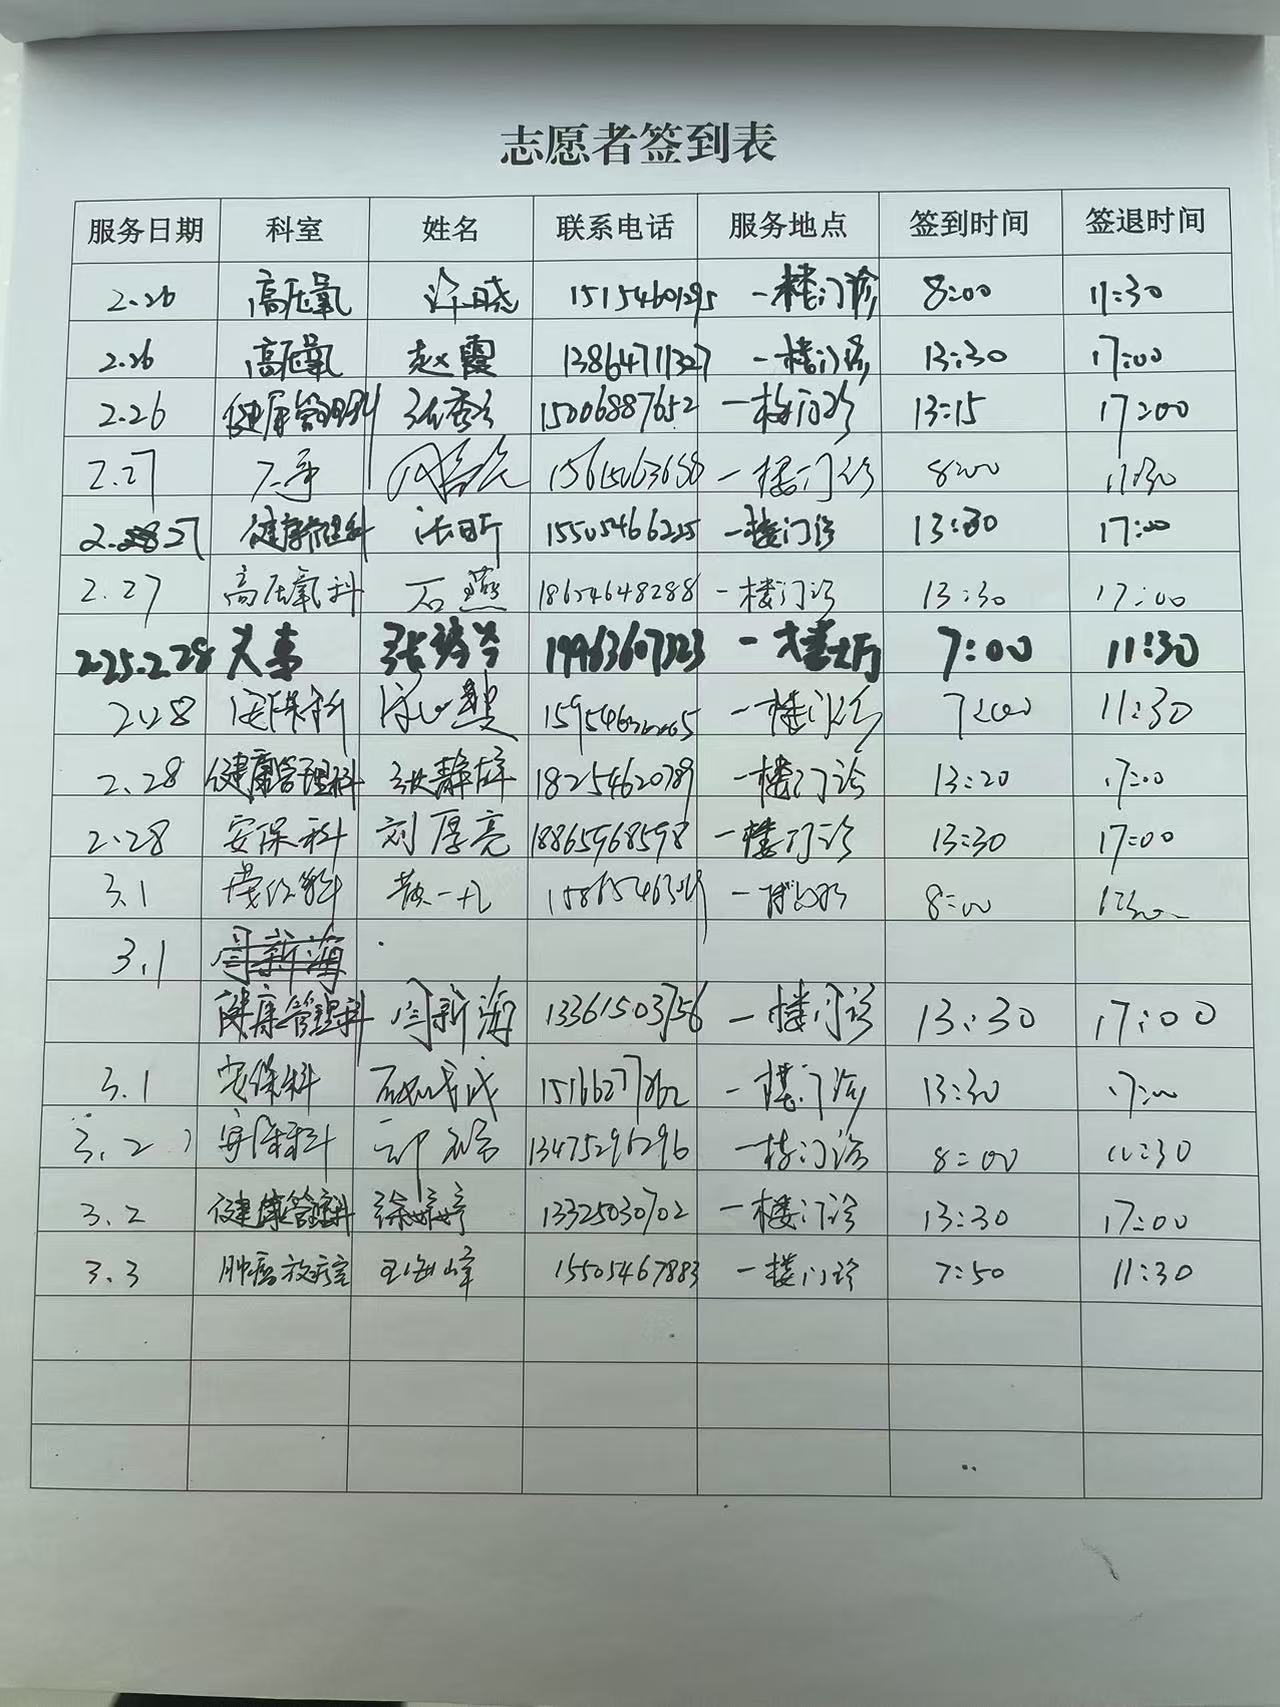 志愿者签到表
服务日期 科室 姓名 联系电话 服务地点 签到时间 签退时间
2.26 高压氧 一楼门诊 8:00 11:30
2.26 高压氧 赵霞 13864711327 一楼门诊 13:30 17:00
2.26 健康管理科 15006887652 一楼门诊 13:15 17:00
2.27 一楼门诊 8:00 11:30
2.27 健康管理科 15505466225 一楼门诊 13:30 17:00
2.27 高压氧科 石燕 18654648288 一楼门诊 13:30 17:00
2.28 19963607323 一楼大厅 7:00 11:30
2.28 安保科 一楼门诊 7:00 11:30
2.28 健康管理科 18254620789 一楼门诊 13:20 17:00
2.28 安保科 刘厚亮 18865968598 一楼门诊 13:30 17:00
3.1 8:00
3.1
健康管理科 闫新海 13361503756 一楼门诊 13:30 17:00
3.1 安保科 一楼门诊 13:30 17:00
3.2 安保科 13475296296 一楼门诊 8:00 11:30
3.2 健康管理科 徐婷婷 13325030702 一楼门诊 13:30 17:00
3.3 肿瘤放疗室 王海峰 15505467883 一楼门诊 7:50 11:30